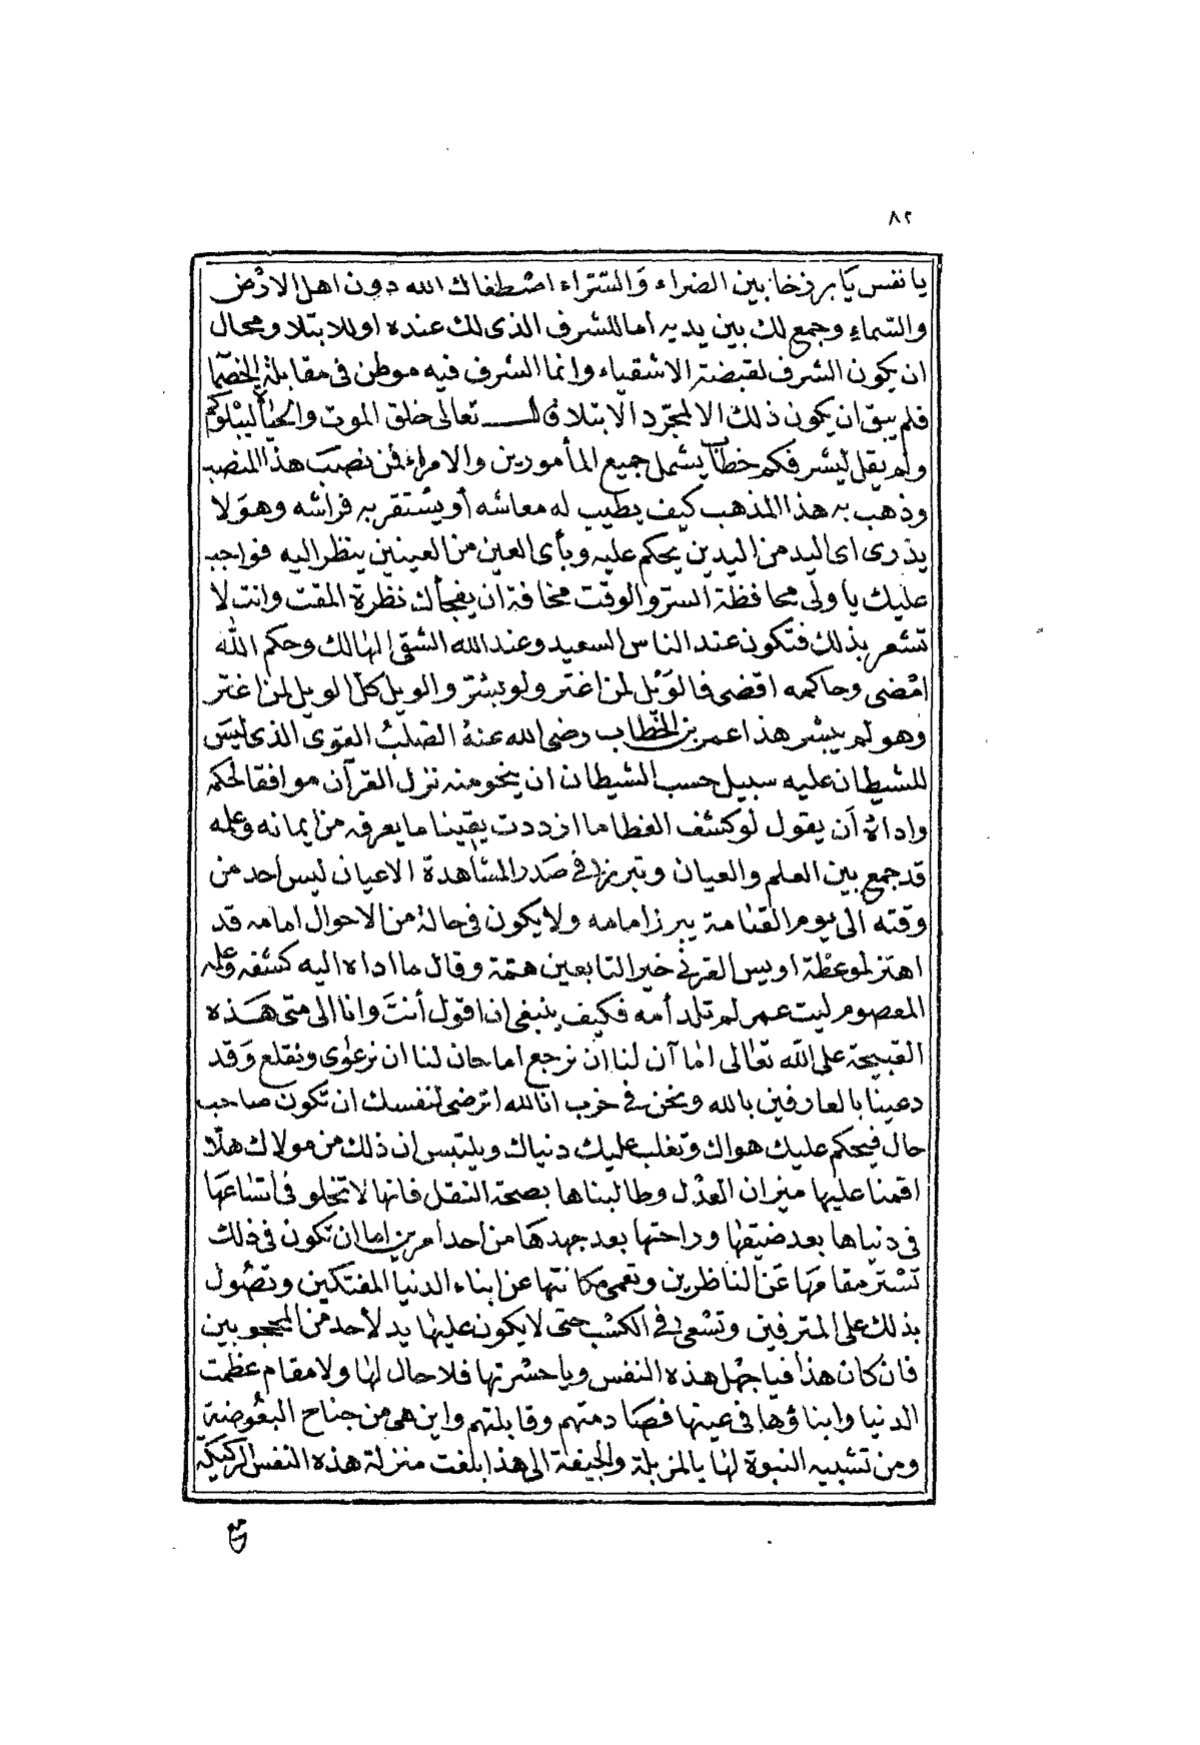 ٨٢
يا نفس يا برزخا بين الضراء والسراء اصطفاك الله دون اهل الارض
والسماء وجمع لك بين يديه اما للشرف الذى لك عنده او للابتلا ومحال
ان يكون الشرف لقبضة الاشقياء وانما الشرف فيه موطن فى مقابلة الخصما
فلم يبق ان يكون ذلك الا لمجرد الابتلا قال تعالى خلق الموت والحياة ليبلوكم
ولم يقل ليشرفكم خطابا يشمل جميع المأمورين والامراء فمن نصب هذا المنصب
وذهب به هذا المذهب كيف يطيب له معاشه أو يستقر به فراشه وهو لا
يدرى اى اليد من اليدين يحكم عليه وبأى العين من العينين ينظر اليه فواجب
عليك يا ولى محافظة السر والوقت مخافة ان يفجأك نظرة المقت وانت لا
تشعر بذلك فتكون عند الناس السعيد وعند الله الشقى الهالك وحكم الله
امضى وحاكمه اقضى فالويل لمن اغتر ولو بشر والويل كل الويل لمن اغتر
وهو لم يبشر هذا عمر بن الخطاب رضى الله عنه الصلب القوى الذى ليس
للشيطان عليه سبيل حسب الشيطان ان ينجو منه نزل القرآن موافقا لحكمه
واداه أن يقول لو كشف الغطا ما ازددت يقينا ما يعرفه من ايمانه وعلمه
قد جمع بين العلم والعيان وتبرز فى صدر المشاهدة الاعيان ليس احد من
وقته الى يوم القيامة يبرز امامه ولا يكون فى حالة من الاحوال امامه قد
اهتز لموعظة اويس القرنى خير التابعين همة وقال ما اداه اليه كشفه وعلمه
المعصوم ليت عمر لم تلد أمه فكيف ينبغى ان اقول أنت وانا الى متى هذه
القبيحة على الله تعالى اما آن لنا ان نرجع اما حان لنا ان نرعوى ونقلع وقد
دعينا بالعارفين بالله ونحن فى حزب انا لله اترضى لنفسك ان تكون صاحب
حال فيحكم عليك هواك وتغلب عليك دنياك ويلتبس ان ذلك من مولاك هلا
اقمنا عليها ميزان العدل وطالبناها بصحة النقل فانها لا تخلو فى اتساعها
فى دنياها بعد ضيقها وراحتها بعد جهدها من احد امرين اما ان تكون فى ذلك
تستر مقامها عن الناظرين وتعمى مكانتها عن ابناء الدنيا المفتكين وتصول
بذلك على المترفين وتسعى فى الكسب حتى لا يكون عليها يد لأحد من المحجوبين
فان كان هذا فيا جهل هذه النفس ويا حسرتها فلا حال لها ولا مقام عظمت
الدنيا وابناؤها فى عينها فصادمتهم وقابلتهم واين هى من جناح البعوضة
ومن تشبيه النبوة لها بالمزبلة والجيفة الى هذا بلغت منزلة هذه النفس الركيكة